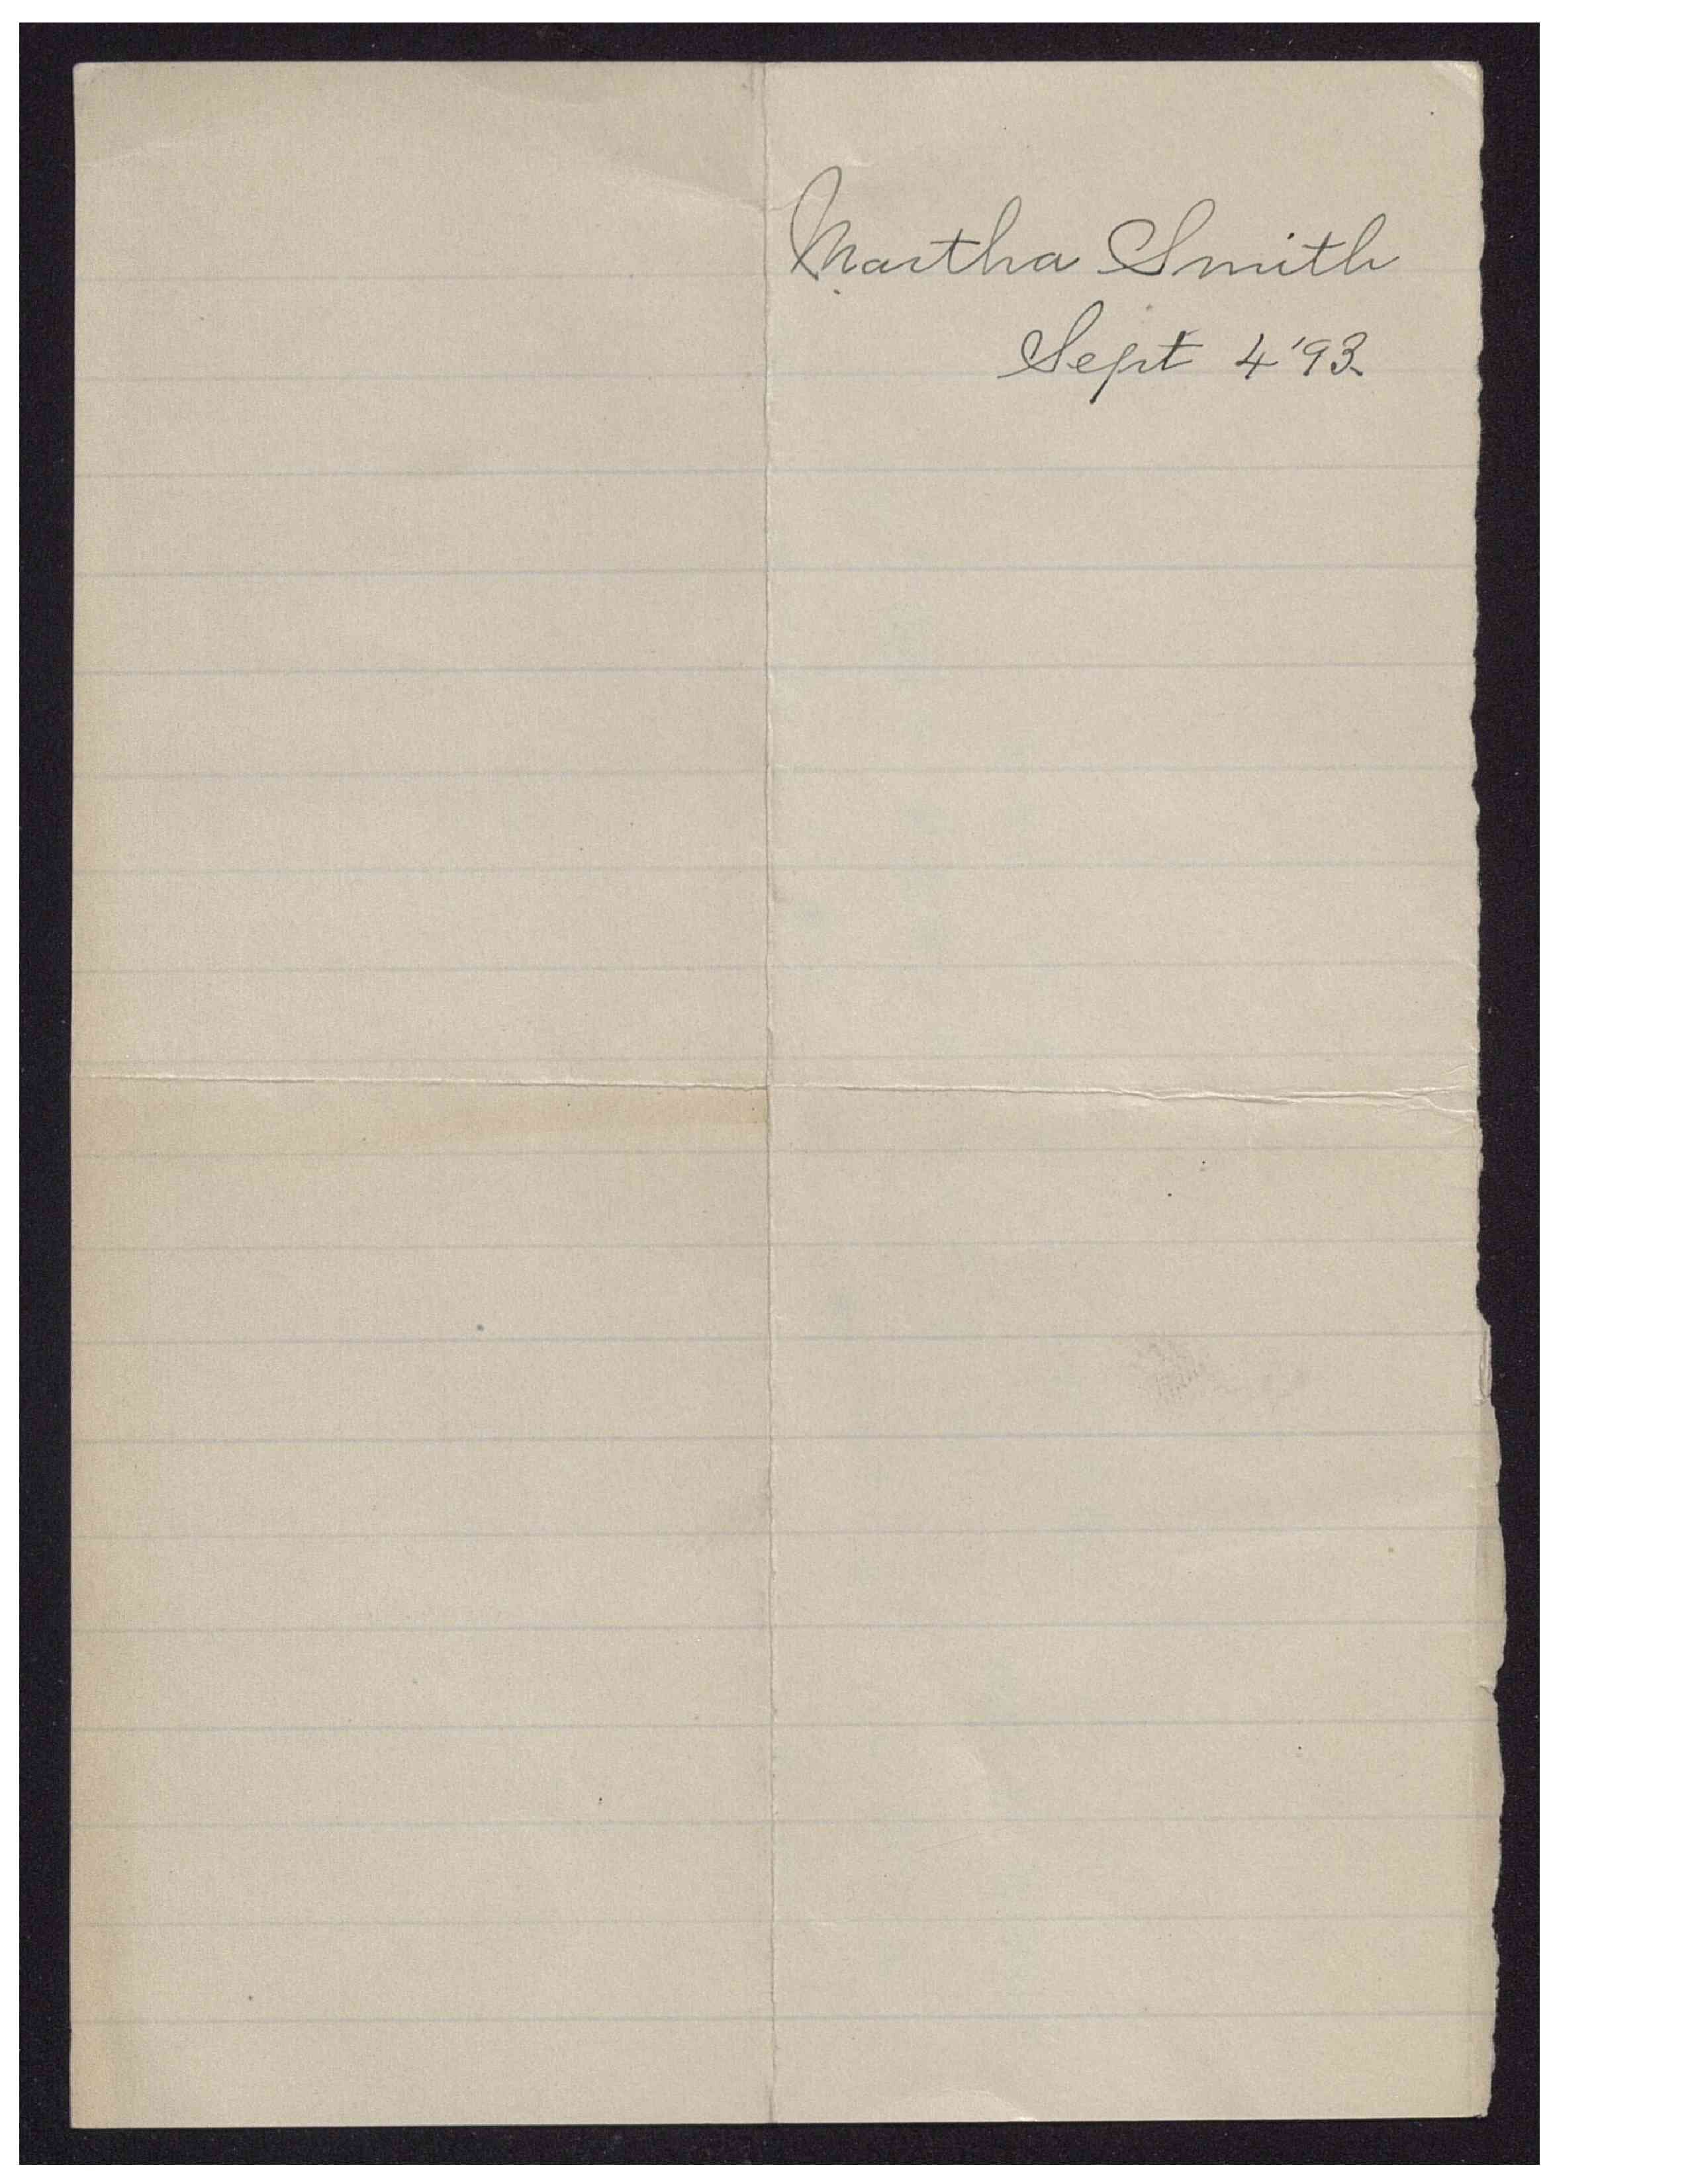 Martha Smith
Sept 4 '93